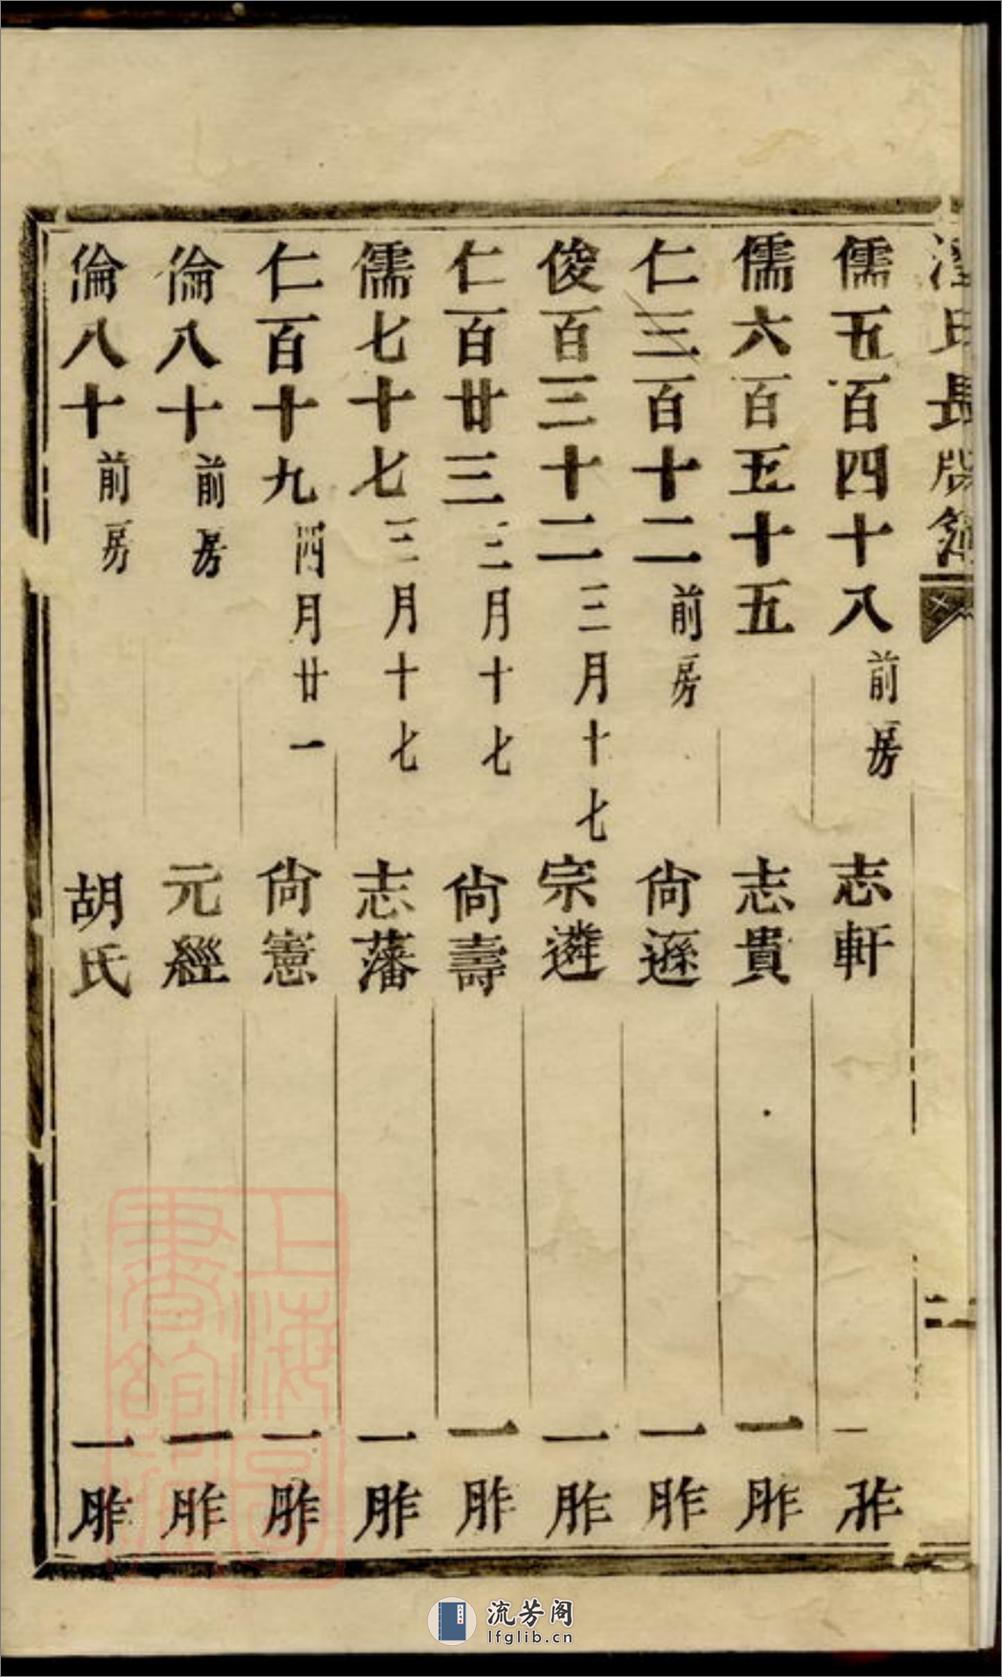 氏長牌
二
儒五百四十八前房 志軒 一胙
儒六百五十五 志貴 一胙
仁三百十二前房 尙遜 一胙
俊百三十二三月十七 宗遴 一胙
仁百廿三三月十七 尙壽 一胙
儒七十七三月十七 志藩 一胙
仁百十九四月廿一 尙憲 一胙
倫八十前房 元經 一胙
倫八十前房 胡氏 一胙
上海圖書館藏
流芳阁
lfglib.cn